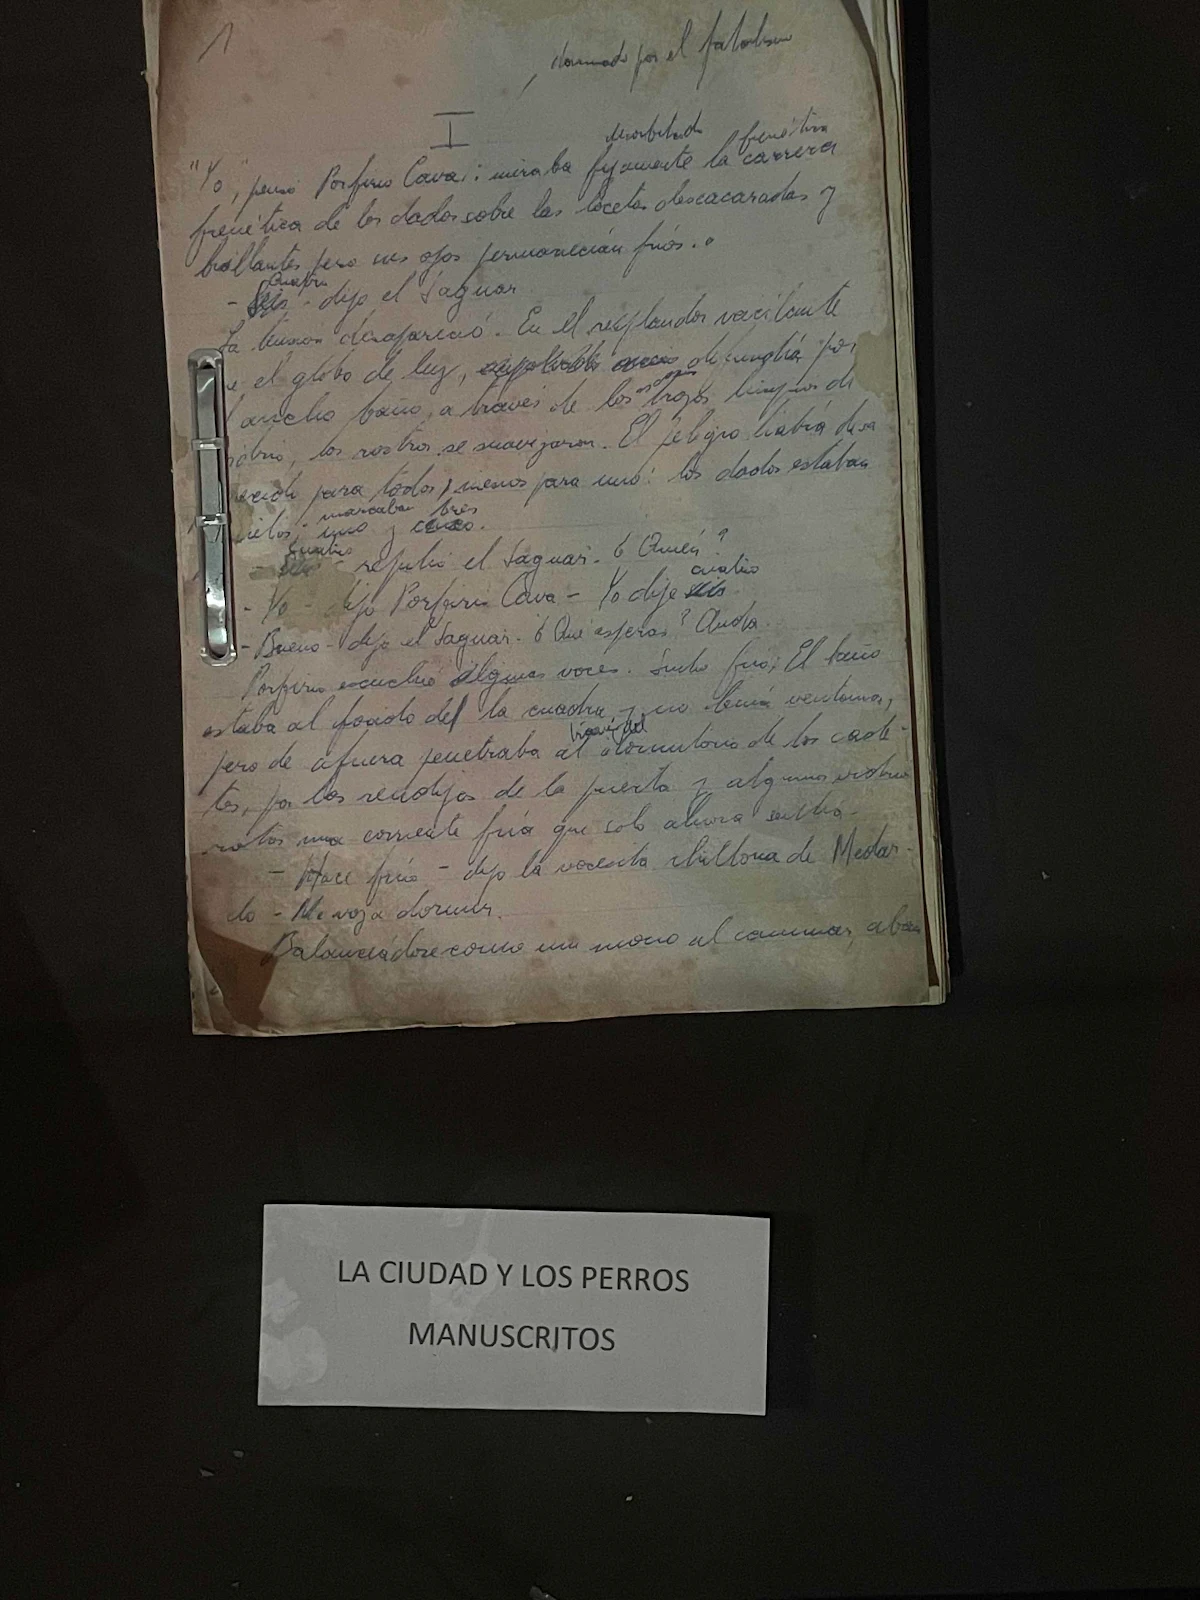 1
, dominado por el fatalismo
I
desorbitado frenética
"Yo", pensó Porfirio Cava: miraba fijamente la carrera
frenética de los dados sobre las locetas descacaradas y
brillantes pero sus ojos permanecían fríos.
Cuatro
- Seis - dijo el Jaguar
La tensión desapareció. En el resplandor vacilante
el globo de luz, por
ancho baño, a través de los trozos limpios de
vidrio, los rostros se suavizaron. El peligro había desa
recido para todos, menos para uno: los dados estaban
marcaban tres
quietos, uno y cinco.
Cuatro
- Seis - repitió el Jaguar. ¿Quién?
cuatro
- Yo - dijo Porfirio Cava - Yo dije seis.
- Bueno - dijo el Jaguar. ¿Qué esperas? Anda.
Porfirio escuchó algunas voces. Sintió frío; El baño
estaba al fondo de la cuadra y no tenía ventanas,
pero de afuera penetraba al dormitorio de los cade-
tes, por las rendijas de la puerta y algunos vidrios
rotos una corriente fría que solo ahora sentía.
- Hace frío - dijo la vocecita chillona de Medar-
do - Me voy a dormir.
Balanceándose como un mono al caminar, aban
LA CIUDAD Y LOS PERROS
MANUSCRITOS